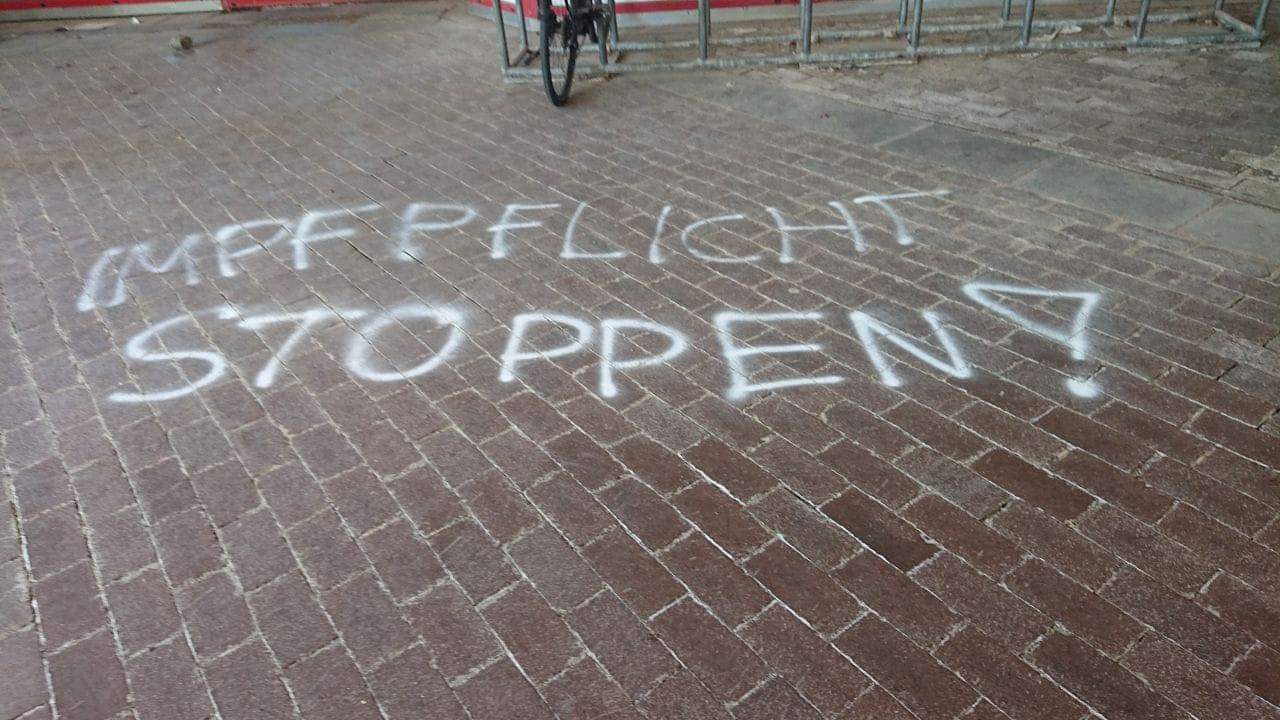 IMPFPFLICHT
STOPPEN!